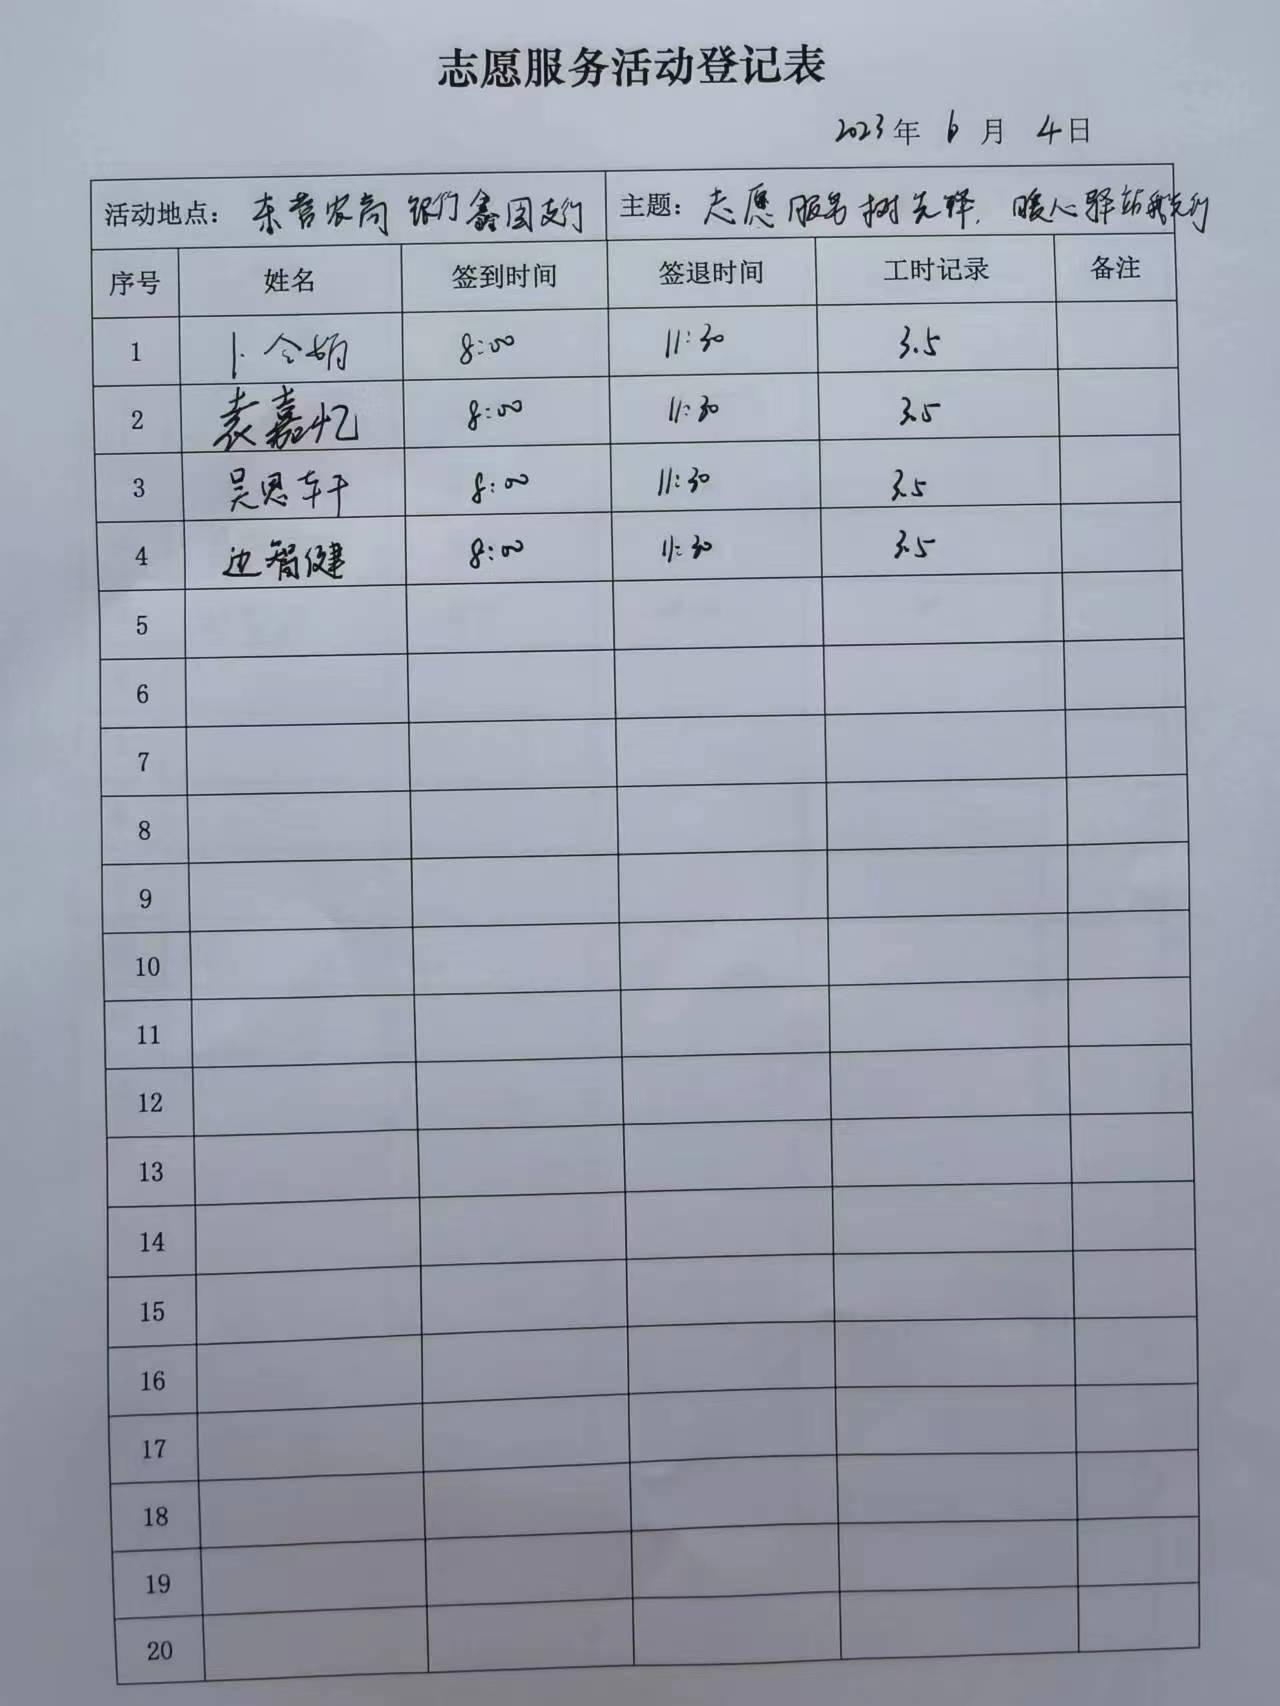 志愿服务活动登记表
2023年 6月 4日
活动地点: 东营农商银行鑫园支行 主题: 志愿服务树先锋,暖心驿站我先行
序号 姓名 签到时间 签退时间 工时记录 备注
1 卜令娟 8:00 11:30 3.5
2 袁嘉忆 8:00 11:30 3.5
3 吴恩轩 8:00 11:30 3.5
4 边智健 8:00 11:30 3.5
5
6
7
8
9
10
11
12
13
14
15
16
17
18
19
20